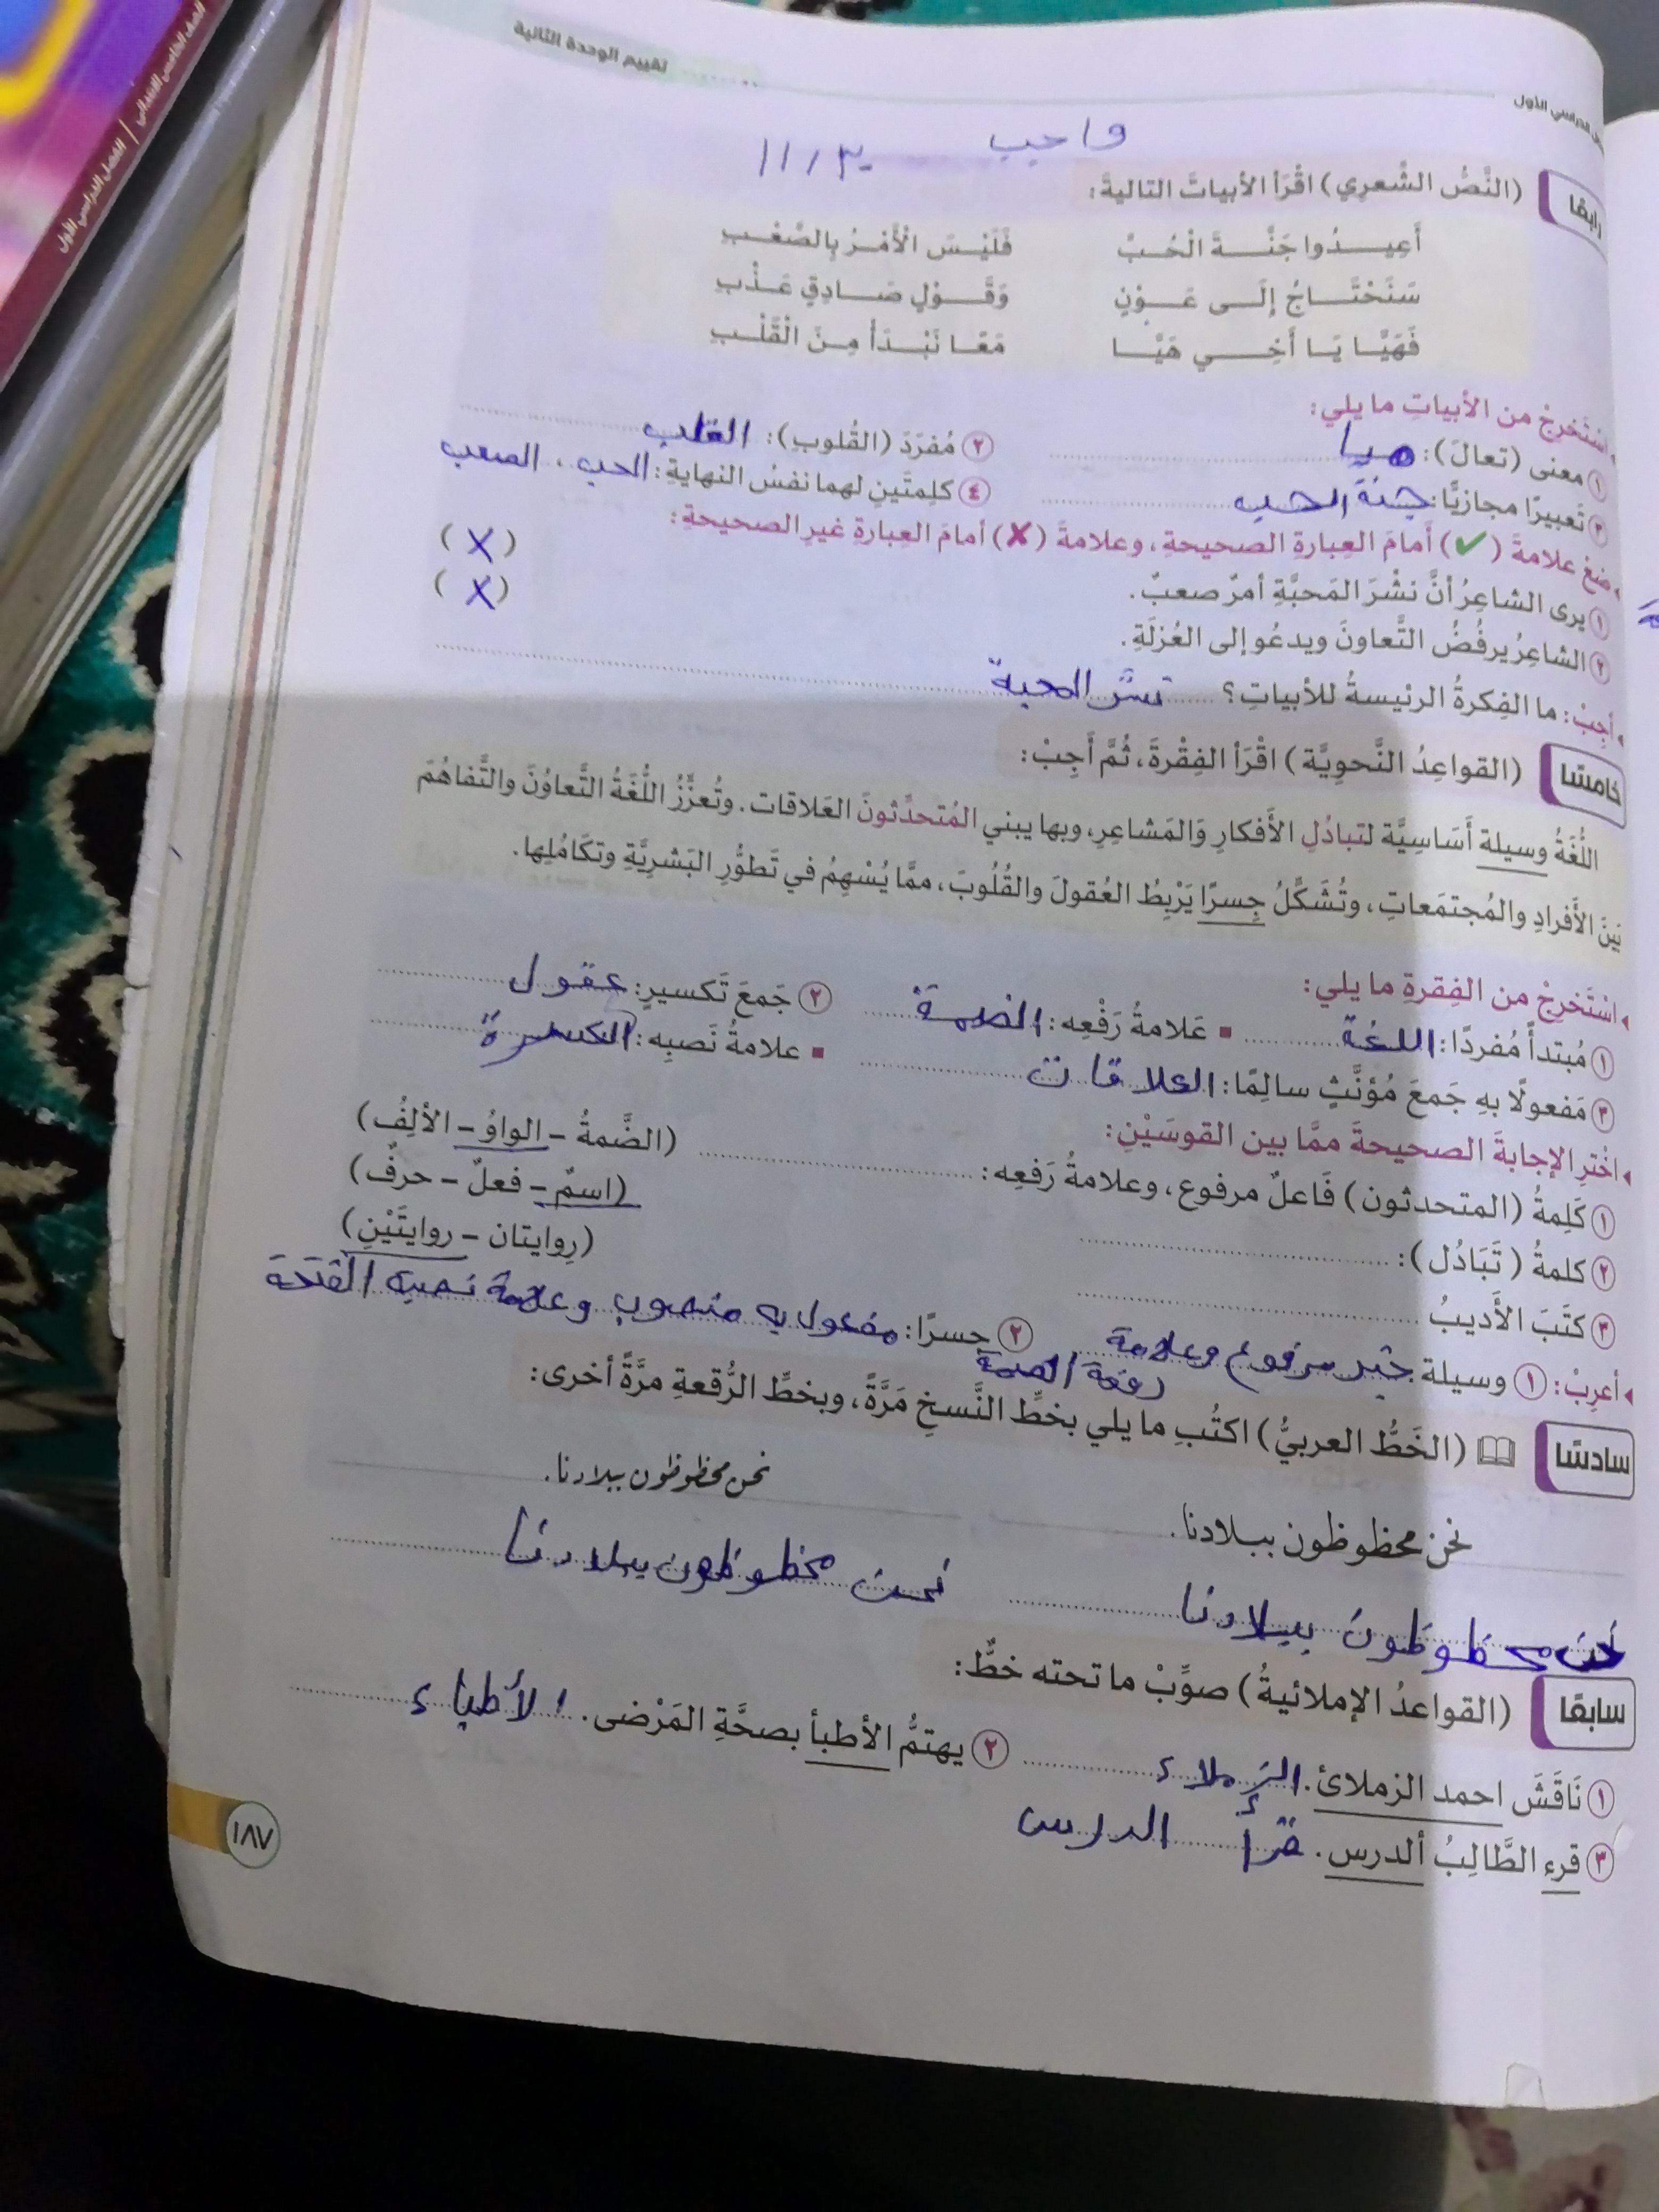 الصف الخامس الابتدائي / الفصل الدراسي الأول
تقييم الوحدة الثانية
الدراسي الأول
واجب ١١/٣٠
رابعًا (النَّصُّ الشِّعرِي) اقْرَأ الأبياتَ التاليةَ:
أَعِيـــدُوا جَنَّـــةَ الْحُـبِّ فَلَيْـسَ الْأَمْـرُ بِالصَّعْـبِ
سَنَحْتَـــاجُ إِلَــى عَـــوْنٍ وَقَـــوْلٍ صَـــادِقٍ عَـذْبِ
فَهَيَّـا يَـا أَخِـــي هَيَّـــا مَعًـا نَبْـدَأْ مِـنَ الْقَلْـبِ
اسْتَخرِجْ من الأبياتِ ما يلي:
١ معنى (تعالَ): هيا ٢ مُفرَدَ (القُلوبِ): القلب
٣ تَعبيرًا مجازيًّا: جنة الحب ٤ كلِمتَينِ لهما نفسُ النهايةِ: الحب ، الصعب
ضعْ علامةَ (✓) أمامَ العِبارةِ الصحيحةِ، وعلامةَ (✗) أمامَ العِبارةِ غيرِ الصحيحةِ:
١ يرى الشاعِرُ أنَّ نشْرَ المَحبَّةِ أمرٌ صعبٌ. (X)
٢ الشاعِرُ يرفُضُ التَّعاونَ ويدعُو إلى العُزلَةِ. (X)
أجِبْ: ما الفِكرةُ الرئيسةُ للأبياتِ؟ نشر المحبة
خامسًا (القواعِدُ النَّحوِيَّة) اقْرَأ الفِقْرةَ، ثُمَّ أَجِبْ:
اللُّغَةُ وسيلة أَسَاسِيَّة لتبادُلِ الأَفكارِ وَالمَشاعِرِ، وبها يبني المُتحدِّثونَ العَلاقات. وتُعزِّزُ اللُّغَةُ التَّعاوُنَ والتَّفاهُمَ
بَينَ الأَفرادِ والمُجتمَعاتِ، وتُشَكِّلُ جِسرًا يَرْبِطُ العُقولَ والقُلُوبَ، ممَّا يُسْهِمُ في تَطوُّرِ البَشريَّةِ وتكَامُلِها.
اسْتَخرِجْ من الفِقرةِ ما يلي:
١ مُبتدأً مُفردًا: اللغة ▪ عَلامةُ رَفْعِه: الضمة ٢ جَمعَ تَكسيرٍ: عقول
٣ مَفعولًا بهِ جَمعَ مُؤنَّثٍ سالِمًا: العلاقات ▪ علامةُ نَصبِه: الكسرة
اخْترِ الإجابةَ الصحيحةَ ممَّا بين القوسَيْنِ:
١ كَلِمةُ (المتحدثون) فَاعلٌ مرفوع، وعلامةُ رَفعِه: (الضَّمةُ – الواوُ – الألِفُ)
٢ كلمةُ (تَبَادُل): (اسمٌ – فعلٌ – حرفٌ)
٣ كتَبَ الأَديبُ (رِوايتان – روايتَيْنِ)
أعرِبْ: ١ وسيلة خبر مرفوع وعلامة رفعة الضمة ٢ جسرًا: مفعول به منصوب وعلامة نصبه الفتحة
سادسًا (الخَطُّ العربيُّ) اكتُبِ ما يلي بخطِّ النَّسخِ مَرَّةً، وبخطِّ الرُّقعةِ مرَّةً أخرى:
نحن محظوظون ببلادنا. نحن محظوظون ببلادنا.
نحن محظوظون ببلادنا نحن محظوظون ببلادنا
سابعًا (القواعدُ الإملائيةُ) صوِّبْ ما تحته خطٌّ:
١ نَاقَشَ احمد الزملائ. الزملاء ٢ يهتمُّ الأطبأ بصحَّةِ المَرْضى. الأطباء
٣ قرء الطَّالِبُ ألدرس. قرأ الدرس
١٨٧